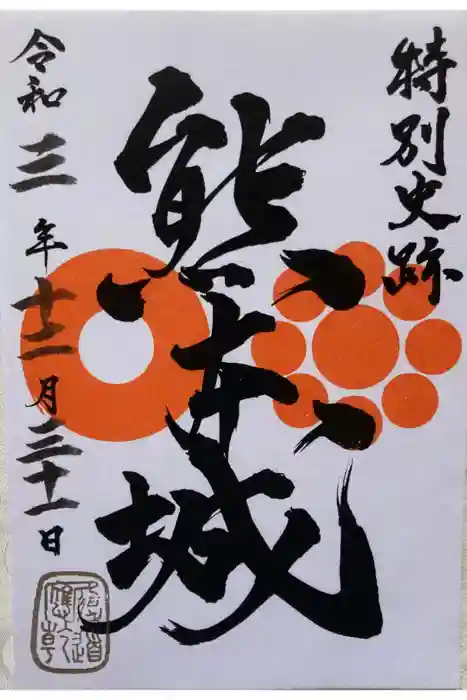 特別史跡
熊本城
令和三年十二月三十一日